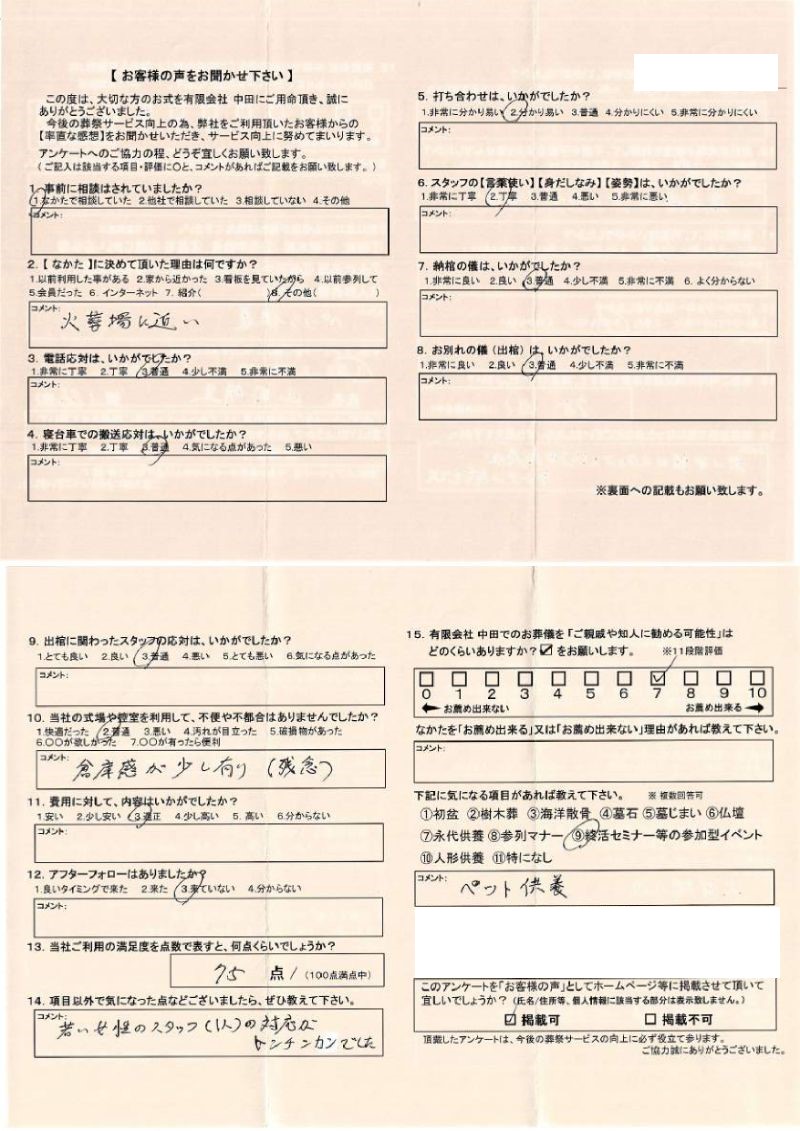 【 お客様の声をお聞かせ下さい 】
この度は、大切な方のお式を有限会社 中田にご用命頂き、誠に
ありがとうございました。
今後の葬祭サービス向上の為、弊社をご利用頂いたお客様からの
【率直な感想】をお聞かせいただき、サービス向上に努めてまいります。
アンケートへのご協力の程、どうぞ宜しくお願い致します。
（ご記入は該当する項目・評価に〇と、コメントがあればご記載をお願い致します。）
1. 事前に相談はされていましたか？
1.なかたで相談していた 2.他社で相談していた 3.相談していない 4.その他
コメント：
2.【 なかた 】に決めて頂いた理由は何ですか？
1.以前利用した事がある 2.家から近かった 3.看板を見ていたから 4.以前参列して
5.会員だった 6. インターネット 7. 紹介（ ）8. その他（ ）
コメント：
火葬場に近い
3. 電話応対は、いかがでしたか？
1.非常に丁寧 2.丁寧 3.普通 4.少し不満 5.非常に不満
コメント：
4. 寝台車での搬送応対は、いかがでしたか？
1.非常に丁寧 2.丁寧 3.普通 4.気になる点があった 5.悪い
コメント：
5. 打ち合わせは、いかがでしたか？
1.非常に分かり易い 2.分かり易い 3.普通 4.分かりにくい 5.非常に分かりにくい
コメント：
6. スタッフの【言葉使い】【身だしなみ】【姿勢】は、いかがでしたか？
1.非常に丁寧 2.丁寧 3.普通 4.悪い 5.非常に悪い
コメント：
7. 納棺の儀は、いかがでしたか？
1.非常に良い 2.良い 3.普通 4.少し不満 5.非常に不満 6. よく分からない
コメント：
8. お別れの儀（出棺）は、いかがでしたか？
1.非常に良い 2.良い 3.普通 4.少し不満 5.非常に不満
コメント：
※裏面への記載もお願い致します。
9. 出棺に関わったスタッフの応対は、いかがでしたか？
1.とても良い 2.良い 3.普通 4.悪い 5.とても悪い 6.気になる点があった
コメント：
10. 当社の式場や控室を利用して、不便や不都合はありませんでしたか？
1.快適だった 2.普通 3.悪い 4.汚れが目立った 5.破損物があった
6.〇〇が欲しかった 7.〇〇が有ったら便利
コメント：
倉庫感が少し有り（残念）
11. 費用に対して、内容はいかがでしたか？
1.安い 2.少し安い 3.適正 4.少し高い 5. 高い 6.分からない
コメント：
12. アフターフォローはありましたか？
1.良いタイミングで来た 2.来た 3.来ていない 4.分からない
コメント：
13. 当社ご利用の満足度を点数で表すと、何点くらいでしょうか？
75 点 / （100点満点中）
14. 項目以外で気になった点などございましたら、ぜひ教えて下さい。
コメント：
若い女性のスタッフ（1人）の対応が
トンチンカンでした
15. 有限会社 中田でのお葬儀を「ご親戚や知人に勧める可能性」は
どのくらいありますか？☑をお願いします。 ※11段階評価
0 1 2 3 4 5 6 7 8 9 10
お薦め出来ない お薦め出来る
なかたを「お薦め出来る」又は「お薦め出来ない」理由があれば教えて下さい。
コメント：
下記に気になる項目があれば教えて下さい。 ※ 複数回答可
①初盆 ②樹木葬 ③海洋散骨 ④墓石 ⑤墓じまい ⑥仏壇
⑦永代供養 ⑧参列マナー ⑨終活セミナー等の参加型イベント
⑩人形供養 ⑪特になし
コメント：
ペット供養
このアンケートを「お客様の声」としてホームページ等に掲載させて頂いて
宜しいでしょうか？（氏名/住所等、個人情報に該当する部分は表示致しません。）
☑ 掲載可 □ 掲載不可
頂戴したアンケートは、今後の葬祭サービスの向上に必ず役立て参ります。
ご協力誠にありがとうございました。